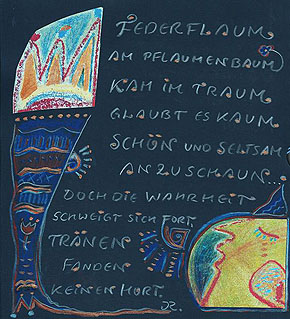 FEDERFLAUM
AM PFLAUMENBAUM
KAM IM TRAUM
GLAUBT ES KAUM
SCHÖN UND SELTSAM
ANZUSCHAUN...
DOCH DIE WAHRHEIT
SCHWEIGT SICH FORT.
TRÄNEN
FANDEN
KEINEN HORT.